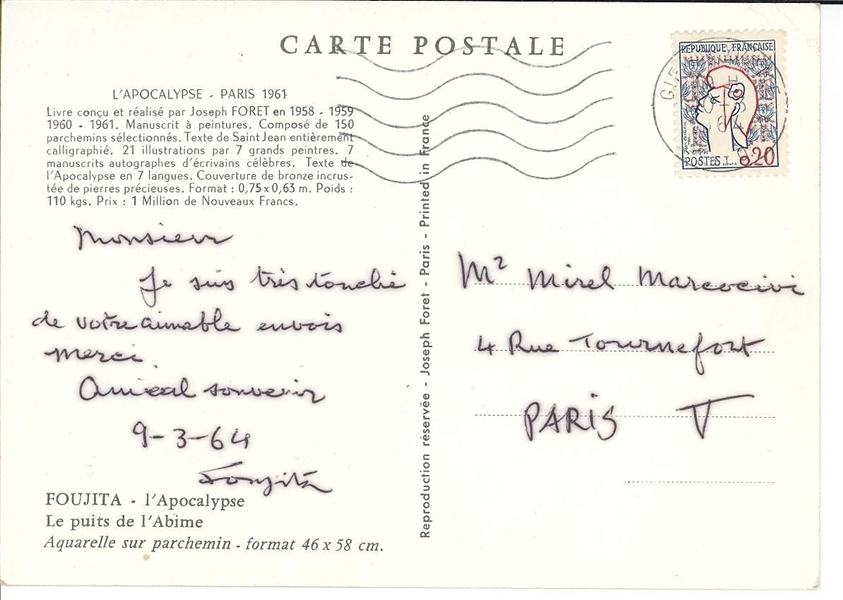 CARTE POSTALE
L'APOCALYPSE - PARIS 1961
Livre conçu et réalisé par Joseph FORET en 1958 - 1959
1960 - 1961. Manuscrit à peintures. Composé de 150
parchemins sélectionnés. Texte de Saint Jean entièrement
calligraphié. 21 illustrations par 7 grands peintres. 7
manuscrits autographes d'écrivains célèbres. Texte de
l'Apocalypse en 7 langues. Couverture de bronze incrus-
tée de pierres précieuses. Format : 0,75 x 0,63 m. Poids :
110 kgs. Prix : 1 Million de Nouveaux Francs.
Monsieur
Je suis très touché
de votre aimable envois
Merci.
Amical souvenir
9-3-64
Foujita
FOUJITA - l'Apocalypse
Le puits de l'Abime
Aquarelle sur parchemin - format 46 x 58 cm.
Reproduction réservée - Joseph Foret - Paris - Printed in France
RÉPUBLIQUE FRANÇAISE
POSTES
0,20
Mr Mirel Marcocivi
4 Rue Tournefort
PARIS V